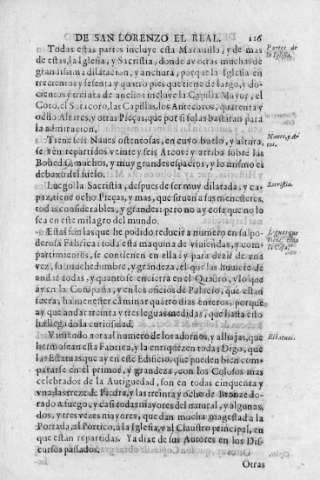 DE SAN LORENZO EL REAL. 126
Todas estas partes incluye esta Marauilla, y de mas
de estas, la Iglesia, y Sacristia, donde ay otras muchas de
grandissima dilatacion, y anchura, porque la Iglesia en
trecientos y sesenta y quatro pies que tiene de largo, y do-
cientos y treinta de ancho; incluye la Capilla Mayor, el
Coro, el Sotacoro, las Capillas, los Antecoros, quarenta y
ocho Altares, y otras Pieças, que por si solas bastaran para
la admiracion.
Partes de
la Iglesia.
Tiene seis Naues ostentosas, en cuyo buelo, y altura,
se vén repartidos veinte y seis Arcos; y arriba sobre las
Bobedas, muchos, y muy grandes espacios, y lo mismo es
debaxo del suelo.
Naues, y Ar-
cos.
Luego la Sacristia, despues de ser muy dilatada, y ca-
paz, tiene ocho Pieças, y mas, que siruen a sus menesteres,
todas considerables, y grandes: pero no ay cosa que no lo
sea en este milagro del mundo.
Sacristia.
Estas son las que he podido reducir a numero en su po-
derosa Fabrica: toda esta maquina de viuiendas, y com-
partimientos, se contienen en ella; y para dezir de una
vez, su muchedumbre, y grandeza, el que las huuiere de
andar todas, y quanto se encierra en el Quadro, y lo que
ay en la Compaña, y en los oficios de Palacio, que estàn
fuera, ha menester caminar quatro dias enteros, porque
ay que andar treinta y tres leguas medidas, que hasta esto
ha llegado la curiosidad.
Viniendo aora al numero de los adornos, y alhajas, que
hermosean esta Fabrica, y la enriquezen todas; Digo, que
las Estatuas que ay en este Edificio, que pueden bien com-
pararse en el primor, y grandeza, con los Colosos mas
celebrados de la Antiguedad, son en todas cinquenta y
vna; las treze de Piedra, y las treinta y ocho de Bronze do-
rado a fuego, y casi todas mayores del natural, y algunas,
dos, y tres vezes mayores, que dàn mucha magestad a la
Portada, al Portico, a la Iglesia, y al Claustro principal, en
que estàn repartidas. Ya dixe de sus Autores en los Dis-
cursos passados.
Estatuas.
Otras